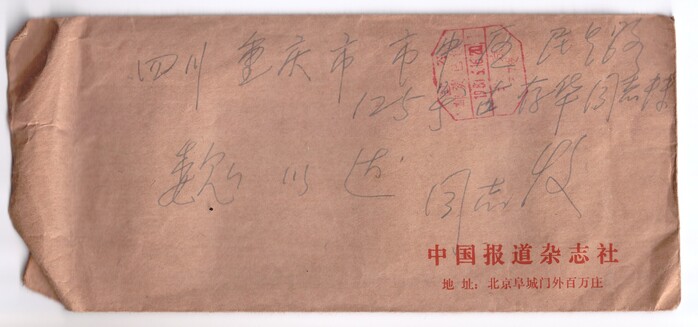 四川 重庆市 市中区 民生路
125号 存华同志转
魏以达 同志收
1981.5.16.20
中国报道杂志社
地 址：北京阜城门外百万庄